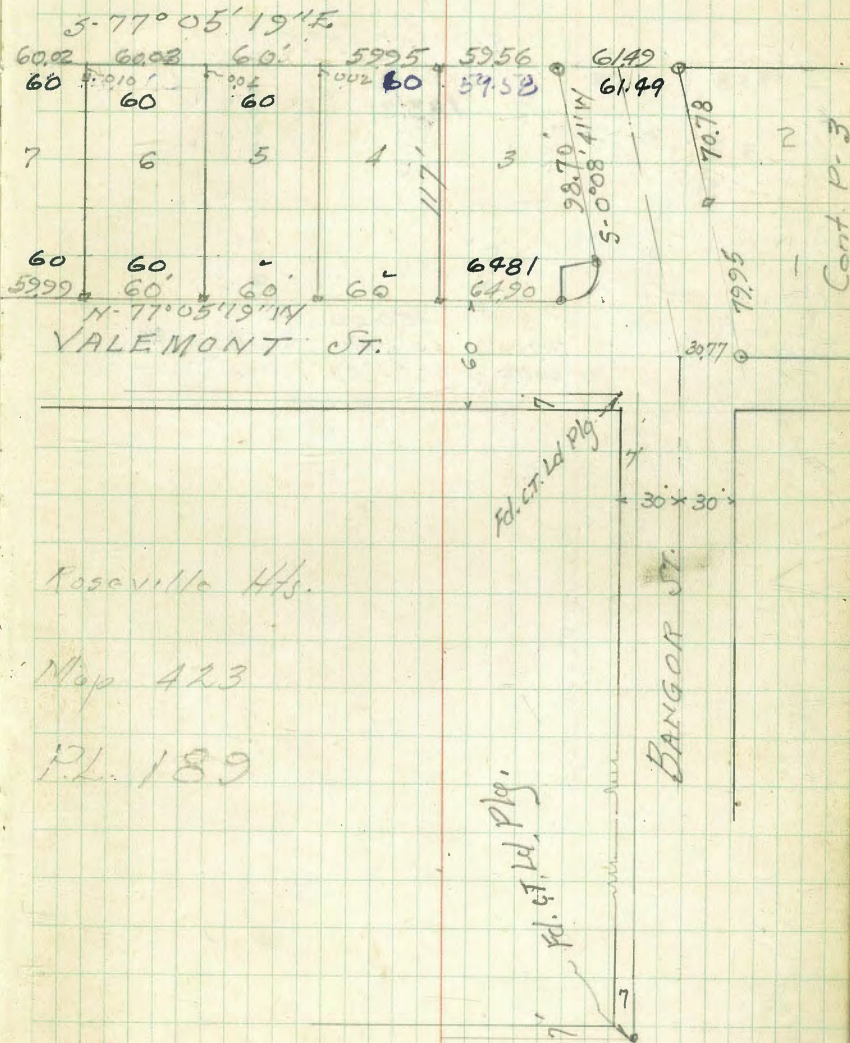 S-77° 05' 19"E
60.02 60.03 60' 5995 5956 61.49
60 .010 .04 .002 60 59.58 61.49
60 60
7 6 5 4 117' 3 98.70' S-0°08'41"W 70.78 2
Cont. P-3
60 60 6481 1
5999 60' 60' 60 64.90 79.95
N-77°05'19"W
VALEMONT ST. 60 30.77
7
Fd. C.T. Ld Plg 7'
30' 30'
BANGOR ST.
Roseville Hts.
Map 423
P.L. 189
Fd. C.T. Ld. Plg.
7
7'